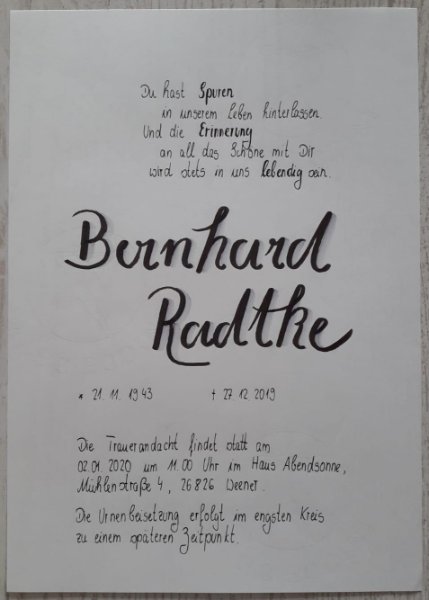 Du hast Spuren
in unserem Leben hinterlassen.
Und die Erinnerung
an all das Schöne mit Dir
wird stets in uns lebendig sein.
Bernhard
Radtke
* 21. 11. 1943 † 27. 12. 2019
Die Trauerandacht findet statt am
02.01.2020 um 11.00 Uhr im Haus Abendsonne,
Mühlenstraße 4, 26826 Weener.
Die Urnenbeisetzung erfolgt im engsten Kreis
zu einem späteren Zeitpunkt.